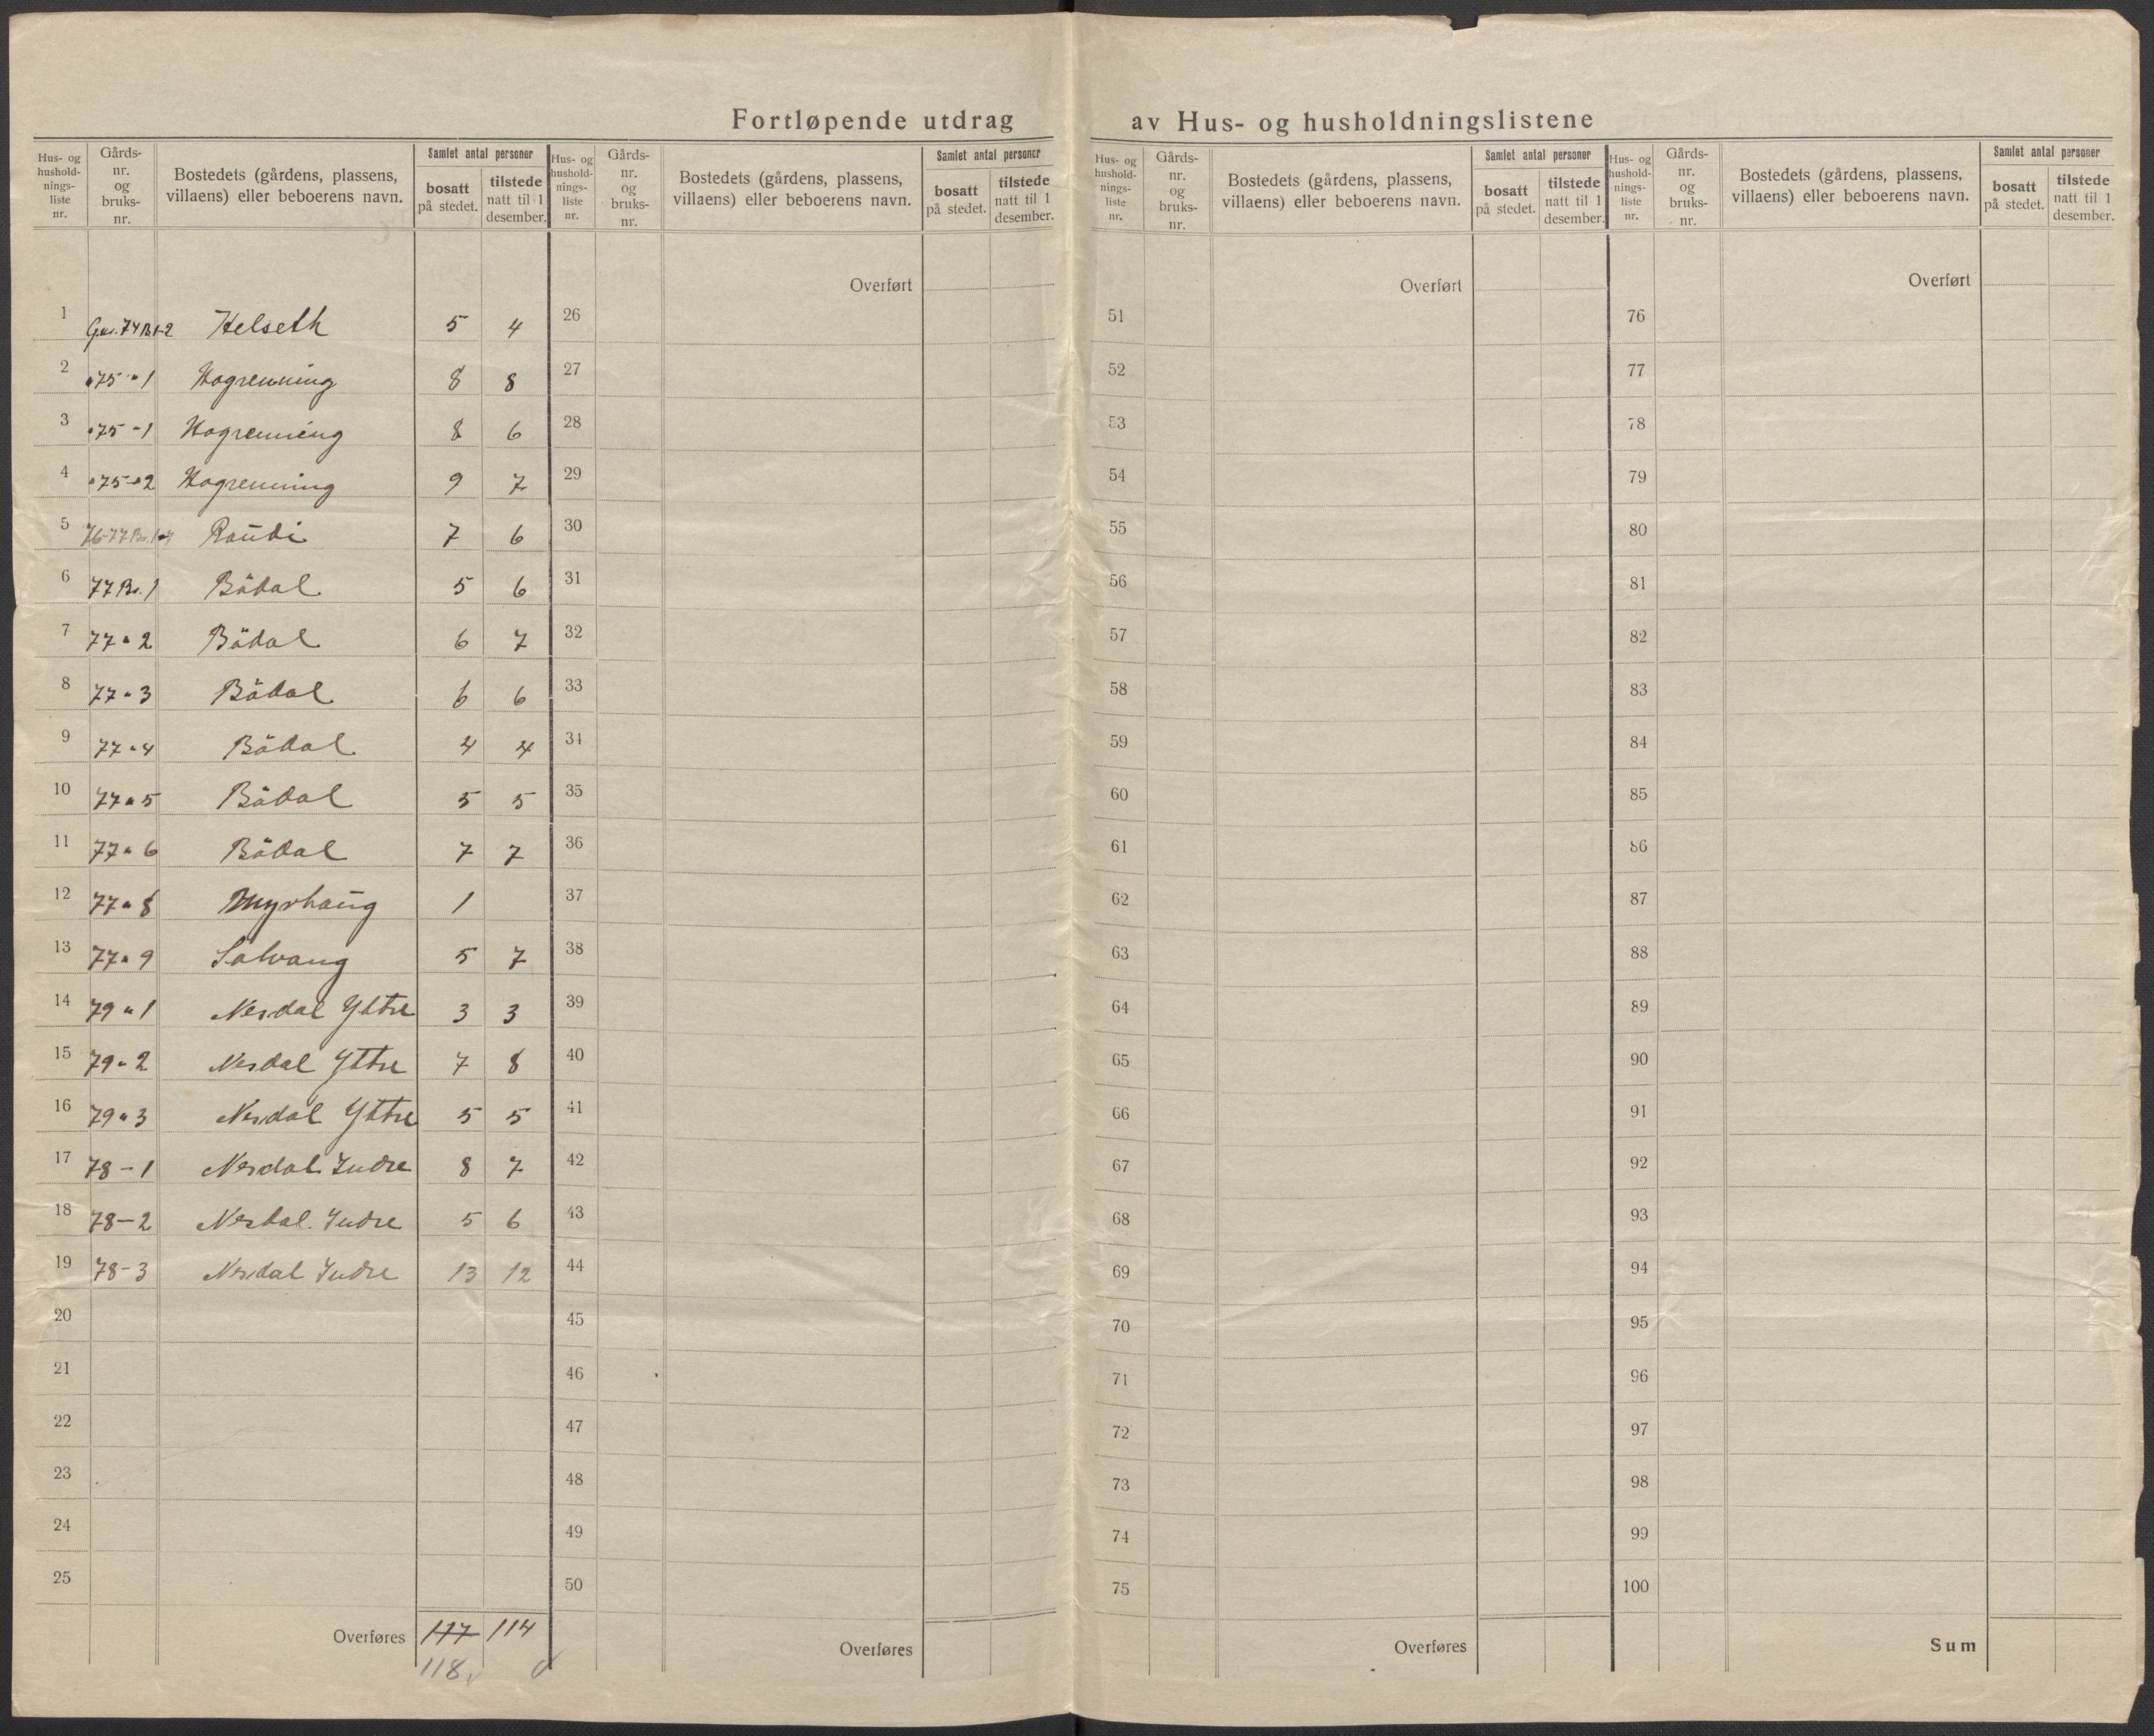 Fortløpende utdrag av Hus- og husholdningslistene
Hus- og hushold-nings-liste nr. | Gårds-nr. og bruks-nr. | Bostedets (gårdens, plassens, villaens) eller beboerens navn. | Samlet antal personer | bosatt på stedet. | tilstede natt til 1 desember.
Hus- og hushold-nings-liste nr. | Gårds-nr. og bruks-nr. | Bostedets (gårdens, plassens, villaens) eller beboerens navn. | Samlet antal personer | bosatt på stedet. | tilstede natt til 1 desember.
Hus- og hushold-nings-liste nr. | Gårds-nr. og bruks-nr. | Bostedets (gårdens, plassens, villaens) eller beboerens navn. | Samlet antal personer | bosatt på stedet. | tilstede natt til 1 desember.
Hus- og hushold-nings-liste nr. | Gårds-nr. og bruks-nr. | Bostedets (gårdens, plassens, villaens) eller beboerens navn. | Samlet antal personer | bosatt på stedet. | tilstede natt til 1 desember.
1 74 Br. 1-2 Helseth 5 4
2 "75 " 1 Hogrenning 8 8
3 "75 - 1 Hogrenning 8 6
4 "75 - 2 Hogrenning 9 7
5 76-77 Br. Raudi 7 6
6 77 Br. 1 Bödal 5 6
7 77 " 2 Bödal 6 7
8 77 " 3 Bödal 6 6
9 77 " 4 Bödal 4 4
10 77 " 5 Bödal 5 5
11 77 " 6 Bödal 7 7
12 77 " 8 Myrhaug 1
13 77 " 9 Solvang 5 7
14 79 " 1 Nesdal Yttre 3 3
15 79 " 2 Nesdal Yttre 7 8
16 79 " 3 Nesdal Yttre 5 5
17 78 - 1 Nesdal Indre 8 7
18 78 - 2 Nesdal Indre 5 6
19 78 - 3 Nesdal Indre 13 12
20
21
22
23
24
25
Overføres 117 114
118
Overført
26
27
28
29
30
31
32
33
34
35
36
37
38
39
40
41
42
43
44
45
46
47
48
49
50
Overføres
Overført
51
52
53
54
55
56
57
58
59
60
61
62
63
64
65
66
67
68
69
70
71
72
73
74
75
Overføres
Overført
76
77
78
79
80
81
82
83
84
85
86
87
88
89
90
91
92
93
94
95
96
97
98
99
100
Sum